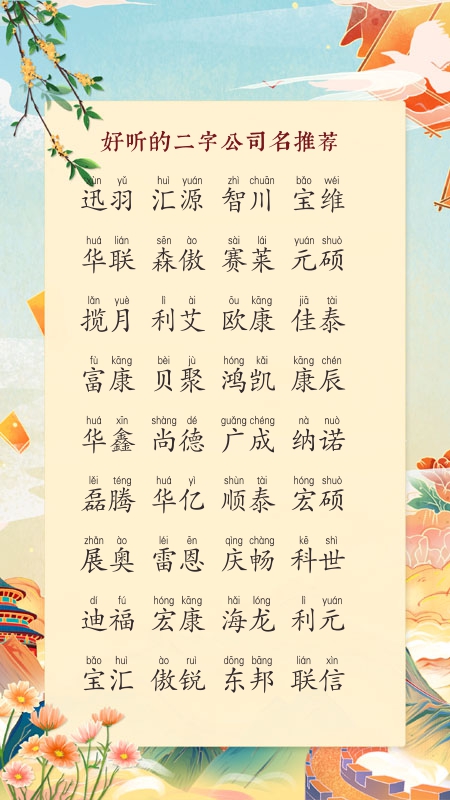 好听的二字公司名推荐
xùn yǔ huì yuán zhì chuān bǎo wéi
迅羽 汇源 智川 宝维
huá lián sēn ào sài lái yuán shuò
华联 森傲 赛莱 元硕
lǎn yuè lì ài ōu kāng jiā tài
揽月 利艾 欧康 佳泰
fù kāng bèi jù hóng kǎi kāng chén
富康 贝聚 鸿凯 康辰
huá xīn shàng dé guǎng chéng nà nuò
华鑫 尚德 广成 纳诺
lěi téng huá yì shùn tài hóng shuò
磊腾 华亿 顺泰 宏硕
zhǎn ào léi ēn qìng chàng kē shì
展奥 雷恩 庆畅 科世
dí fú hóng kāng hǎi lóng lì yuán
迪福 宏康 海龙 利元
bǎo huì ào ruì dōng bāng lián xìn
宝汇 傲锐 东邦 联信